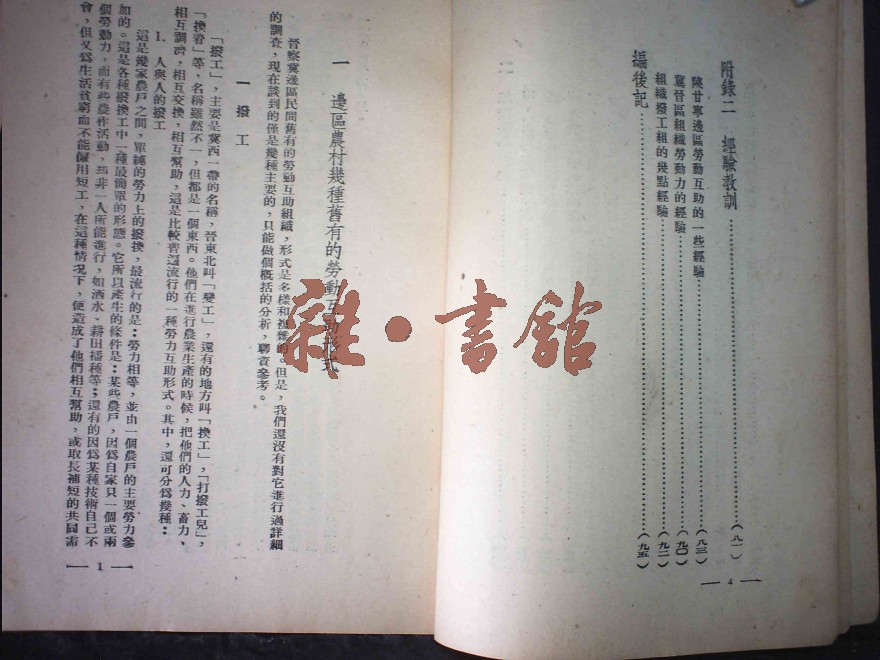 附錄二 經驗教訓……(八一)
陝甘寧邊區勞動互助的一些經驗……(八三)
冀晉區組織勞動力的經驗……(九〇)
組織撥工組的幾點經驗……(九二)
編後記……(九五)
— 4 —
一 邊區農村幾種舊有的勞動互助形式
晉察冀邊區民間舊有的勞動互助組織,形式是多樣和複雜的。但是,我們還沒有對它進行過詳細
的調查,現在談到的僅是幾種主要的,只能做個概括的分析,聊資參考。
一 撥工
「撥工」,主要是冀西一帶的名稱,晉東北叫「變工」,還有的地方叫「換工」,「打撥工兒」,
「換着」等,名稱雖然不一,但都是一個東西。他們在進行農業生產的時候,把他們的人力、畜力、
相互調濟,相互交換,相互幫助,這是比較普遍流行的一種勞力互助形式。其中,還可分爲幾種:
1. 人與人的撥工
這是幾家農戶之間,單純的勞力上的撥換,最流行的是:勞力相等,並由一個農戶的主要勞力參
加的。這是各種撥換工中一種最簡單的形態。它所以產生的條件是:某些農戶,因爲自家只一個或兩
個勞動力,而有些農作活動,馬非一人所能進行,如洒水、耕田播種等;還有的因爲某種技術自己不
會,但又爲生活貧窮而不能僱用短工,在這種情况下,便造成了他們相互幫助,或取長補短的共同需
— 1 —
雜·書館